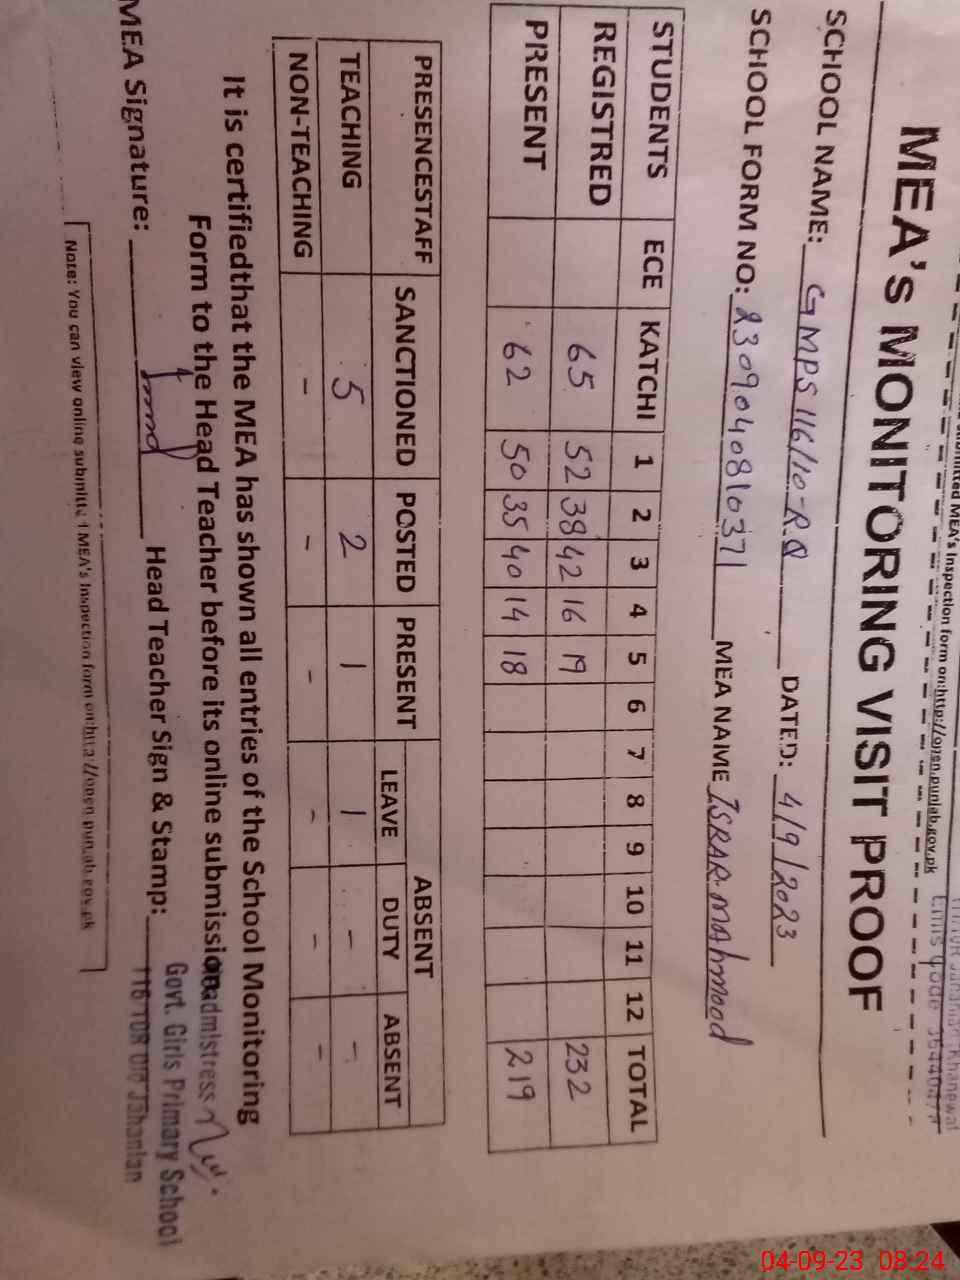 submitted MEA's Inspection form on:http://open.punjab.gov.pk
Emis Code
MEA'S MONITORING VISIT PROOF
SCHOOL NAME: GMPS 116/10-R Q DATED: 4/9/2023
SCHOOL FORM NO: 2309040810371 MEA NAME ISRAR MAHMOOD
STUDENTS ECE KATCHI 1 2 3 4 5 6 7 8 9 10 11 12 TOTAL
REGISTRED 65 52 38 42 16 19 232
PRESENT 62 50 35 40 14 18 219
PRESENCESTAFF SANCTIONED POSTED PRESENT ABSENT
LEAVE DUTY ABSENT
TEACHING 5 2 1 1 - -
NON-TEACHING - - - - - -
It is certifiedthat the MEA has shown all entries of the School Monitoring
Form to the Head Teacher before its online submission.
MEA Signature: Head Teacher Sign & Stamp:
Headmistress
Govt. Girls Primary School
116 10R Old Jahanian
Note: You can view online submitted MEA's Inspection form on:http://open.punjab.gov.pk
04-09-23 08:24